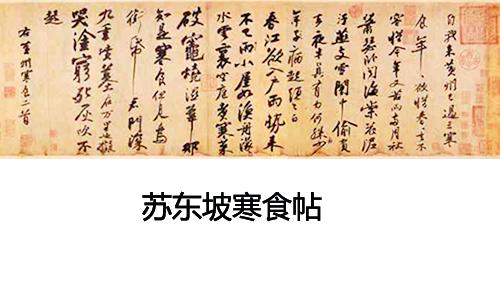 自我来黄州已過三寒
食年〻欲惜春〻去不
容惜今年又苦雨兩月秋
蕭瑟卧聞海棠花泥
汙燕支雪闇中偷負
去夜半真有力何殊少
年子病起頭已白
春江欲入户雨勢來
不已雨小屋如漁舟濛〻
水雲裏空庖煮寒菜
破竈燒濕葦那
知是寒食但見烏
銜帋君門深
九重墳墓在万里也擬
哭塗窮死灰吹不
起
右黄州寒食二首
苏东坡寒食帖